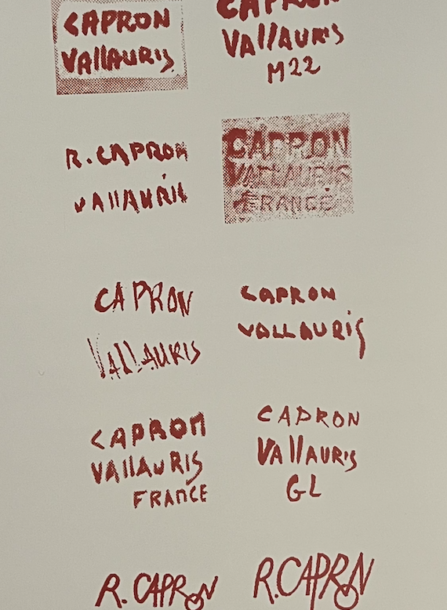 CAPRON
VAllAURIS
CAPRON
VAllAURIS
M22
R. CAPRON
VAllAURIS
CAPRON
VALLAURIS
FRANCE
CAPRON
VALLAURIS
CAPRON
VALLAURIS
CAPRON
VAllAURIS
FRANCE
CAPRON
VAllAURIS
GL
R. CAPRON
R. CAPRON